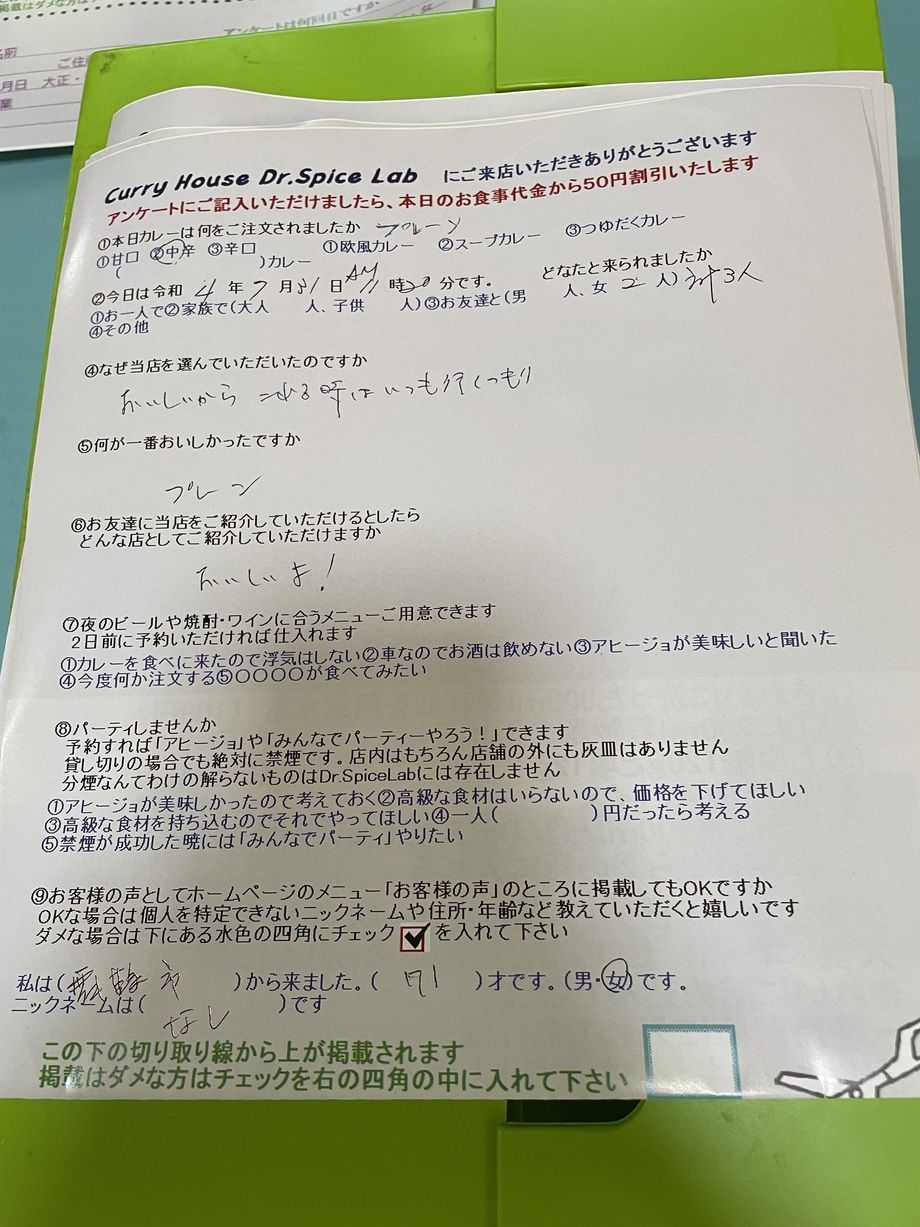 掲載はダメな方は
アンケートは何回目ですか
名前
ご住
月日 大正・
業
Curry House Dr.Spice Lab にご来店いただきありがとうございます
アンケートにご記入いただけましたら、本日のお食事代金から50円割引いたします
①本日カレーは何をご注文されましたか プレーン
①甘口 ②中辛 ③辛口 ①欧風カレー ②スープカレー ③つゆだくカレー
( )カレー
②今日は令和 4 年 7 月 31 日 AM 11 時 20 分です。 どなたと来られましたか
①お一人で②家族で(大人 人、子供 人)③お友達と(男 人、女 2 人) 計3人
④その他
④なぜ当店を選んでいただいたのですか
おいしいから これる時はいつも行くつもり
⑤何が一番おいしかったですか
プレーン
⑥お友達に当店をご紹介していただけるとしたら
どんな店としてご紹介していただけますか
おいしいよ!
⑦夜のビールや焼酎・ワインに合うメニューご用意できます
2日前に予約いただければ仕入れます
①カレーを食べに来たので浮気はしない②車なのでお酒は飲めない③アヒージョが美味しいと聞いた
④今度何か注文する⑤〇〇〇〇が食べてみたい
⑧パーティしませんか
予約すれば「アヒージョ」や「みんなでパーティーやろう!」できます
貸し切りの場合でも絶対に禁煙です。店内はもちろん店舗の外にも灰皿はありません
分煙なんてわけの解らないものはDr.SpiceLabには存在しません
①アヒージョが美味しかったので考えておく②高級な食材はいらないので、価格を下げてほしい
③高級な食材を持ち込むのでそれでやってほしい④一人( )円だったら考える
⑤禁煙が成功した暁には「みんなでパーティ」やりたい
⑨お客様の声としてホームページのメニュー「お客様の声」のところに掲載してもOKですか
OKな場合は個人を特定できないニックネームや住所・年齢など教えていただくと嬉しいです
ダメな場合は下にある水色の四角にチェック を入れて下さい
私は( 市 )から来ました。( 71 )才です。(男・女)です。
ニックネームは( なし )です
この下の切り取り線から上が掲載されます
掲載はダメな方はチェックを右の四角の中に入れて下さい